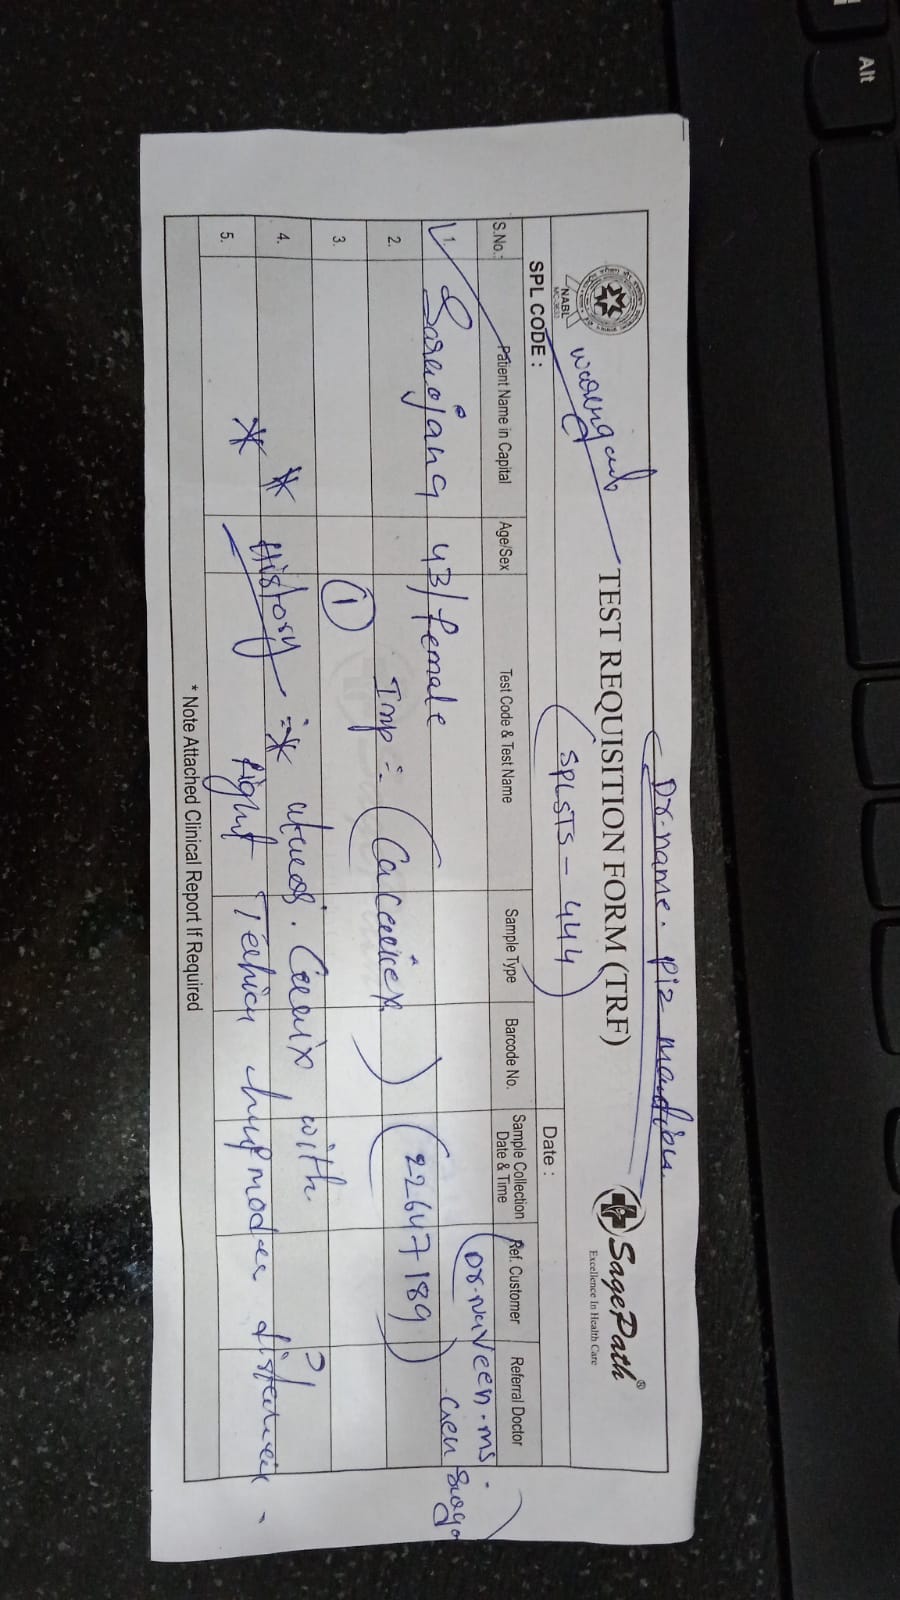 Dr. name. Piz mention
warangal
NABL
TEST REQUISITION FORM (TRF)
SagePath®
Excellence In Health Care
SPL CODE :
(SPLSTS - 444)
Date :
S.No.: Patient Name in Capital Age/Sex Test Code & Test Name Sample Type Barcode No. Sample Collection Date & Time Ref. Customer Referral Doctor
1. Sarojana 43/female (Dr. Naveen. ms. Gen
2. Imp :- ( ) (22647189)
3. 1
4. * History :- * Cervix with ?
5. * Right
* Note Attached Clinical Report If Required
Alt